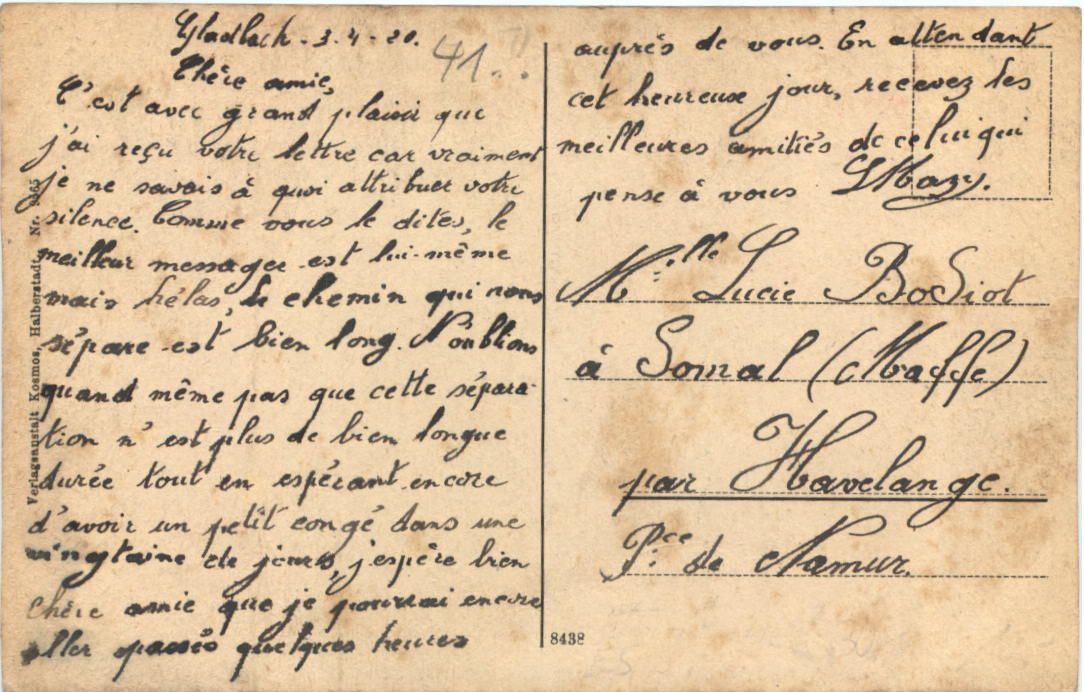 Gladbach - 3-4-20.
41..
Chère amie,
C'est avec grand plaisir que
j'ai reçu votre lettre car vraiment
je ne savais à quoi attribuer votre
silence. Comme vous le dites, le
meilleur messager est lui-même
mais hélas, le chemin qui nous
sépare est bien long. N'oublions
quand même pas que cette sépara-
tion n'est plus de bien longue
durée tout en espérant encore
d'avoir un petit congé dans une
vingtaine de jours, j'espère bien
chère amie que je pourrai encore
aller passés quelques heures
auprés de vous. En attendant
cet heureux jour, recevez les
meilleures amitiés de celui qui
pense à vous
Melle Lucie BoSiot
à Somal (Maffe)
par Havelange.
Pce de Namur.
Verlagsanstalt Kosmos, Halberstadt, Nr.
8438